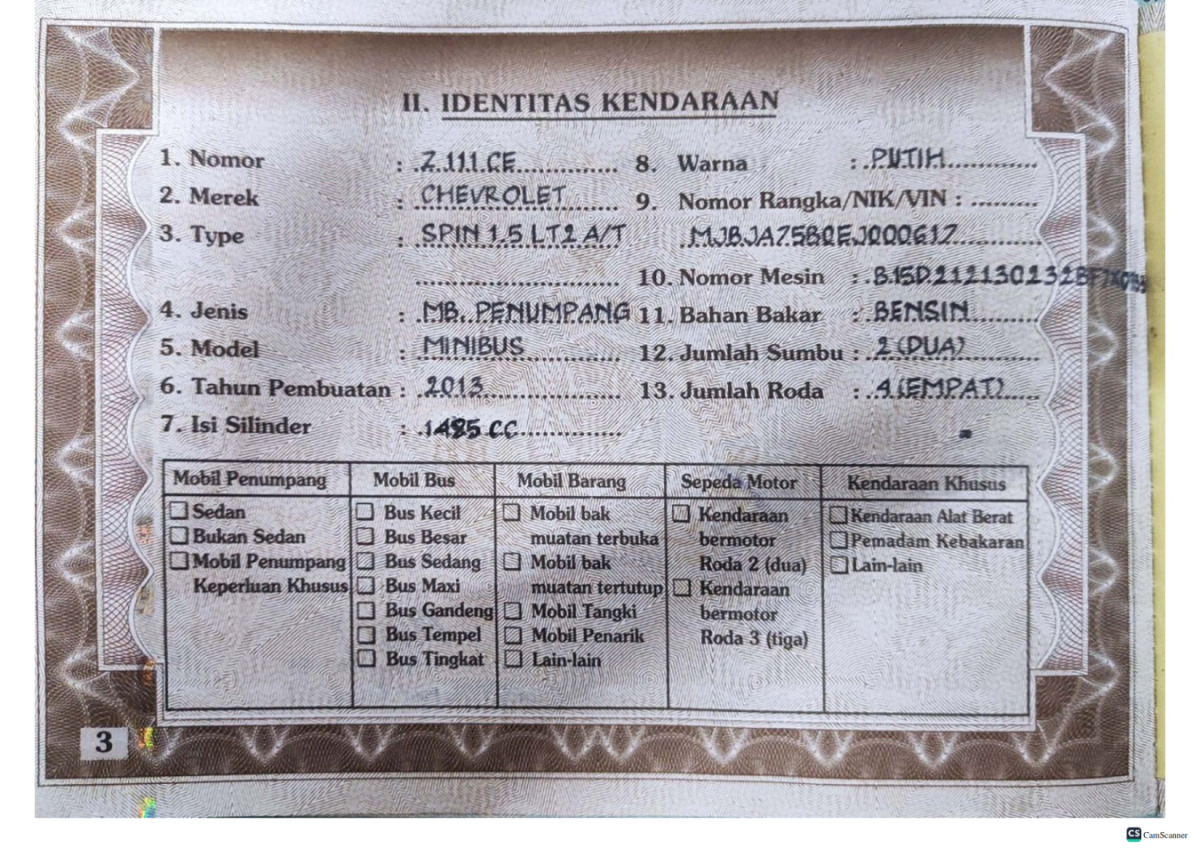 II. IDENTITAS KENDARAAN
1. Nomor : Z 111 CE
2. Merek : CHEVROLET
3. Type : SPIN 1.5 LT2 A/T
4. Jenis : MB. PENUMPANG
5. Model : MINIBUS
6. Tahun Pembuatan : 2013
7. Isi Silinder : 1485 CC
8. Warna : PUTIH
9. Nomor Rangka/NIK/VIN :
MJBJA75B0EJ000617
10. Nomor Mesin :
11. Bahan Bakar : BENSIN
12. Jumlah Sumbu : 2 (DUA)
13. Jumlah Roda : 4 (EMPAT)
Mobil Penumpang
Sedan
Bukan Sedan
Mobil Penumpang
Keperluan Khusus
Mobil Bus
Bus Kecil
Bus Besar
Bus Sedang
Bus Maxi
Bus Gandeng
Bus Tempel
Bus Tingkat
Mobil Barang
Mobil bak
muatan terbuka
Mobil bak
muatan tertutup
Mobil Tangki
Mobil Penarik
Lain-lain
Sepeda Motor
Kendaraan
bermotor
Roda 2 (dua)
Kendaraan
bermotor
Roda 3 (tiga)
Kendaraan Khusus
Kendaraan Alat Berat
Pemadam Kebakaran
Lain-lain
3
CS CamScanner